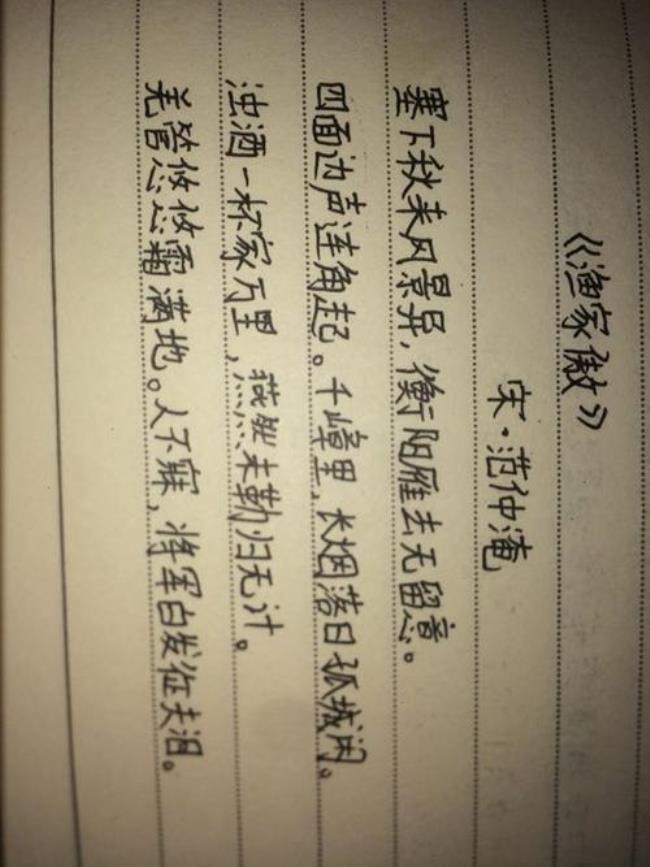 《渔家傲》
宋·范仲淹
塞下秋来风景异,衡阳雁去无留意。
四面边声连角起。千嶂里,长烟落日孤城闭。
浊酒一杯家万里,燕然未勒归无计。
羌管悠悠霜满地。人不寐,将军白发征夫泪。